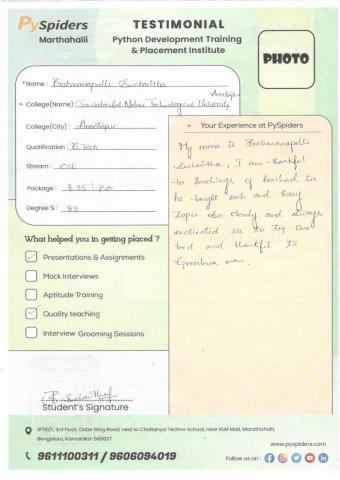 PySpiders
Marthahalli
TESTIMONIAL
Python Development Training
& Placement Institute
PHOTO
Name : Brahmanapalli Sucharitha
Anantapur
College(Name) : Jawaharlal Nehru Technological University
College(City) : Anantapur
Qualification : B.Tech
Stream : CSE
Package : 8.55 Lpa
Degree % : 85
Your Experience at PySpiders
My name is Brahmanapalli
Sucharitha, I am thankful
to teachings of Sir
he taught each and Every
topic clearly and always
motivated us to try our
best and thankful to
mam.
What helped you in getting placed ?
Presentations & Assignments
Mock Interviews
Aptitude Training
Quality teaching
Interview Grooming Sessions
B. Sucharitha
Student's Signature
#761/1, 3rd Floor, Outer Ring Road, next to Chaitanya Techno School, near KLM Mall, Marathahalli,
Bengaluru, Karnataka-560037
9611100311 / 9606094019
www.pyspiders.com
Follow us on :